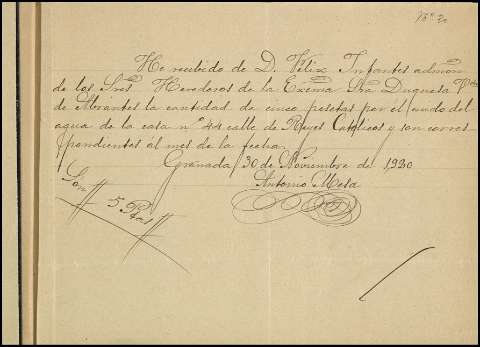 He recibido de D. Felix Infantes admon
de los Sres Herederos de la Exema Sra Duquesa Vda
de Abrantes la cantidad de cinco pesetas por el
agua de la casa nº 44 calle de Reyes Catolicos y son corres
pondientes al mes de la fecha.
Granada 30 de Noviembre de 1920
Antonio Mesa
Son 5 Ptas